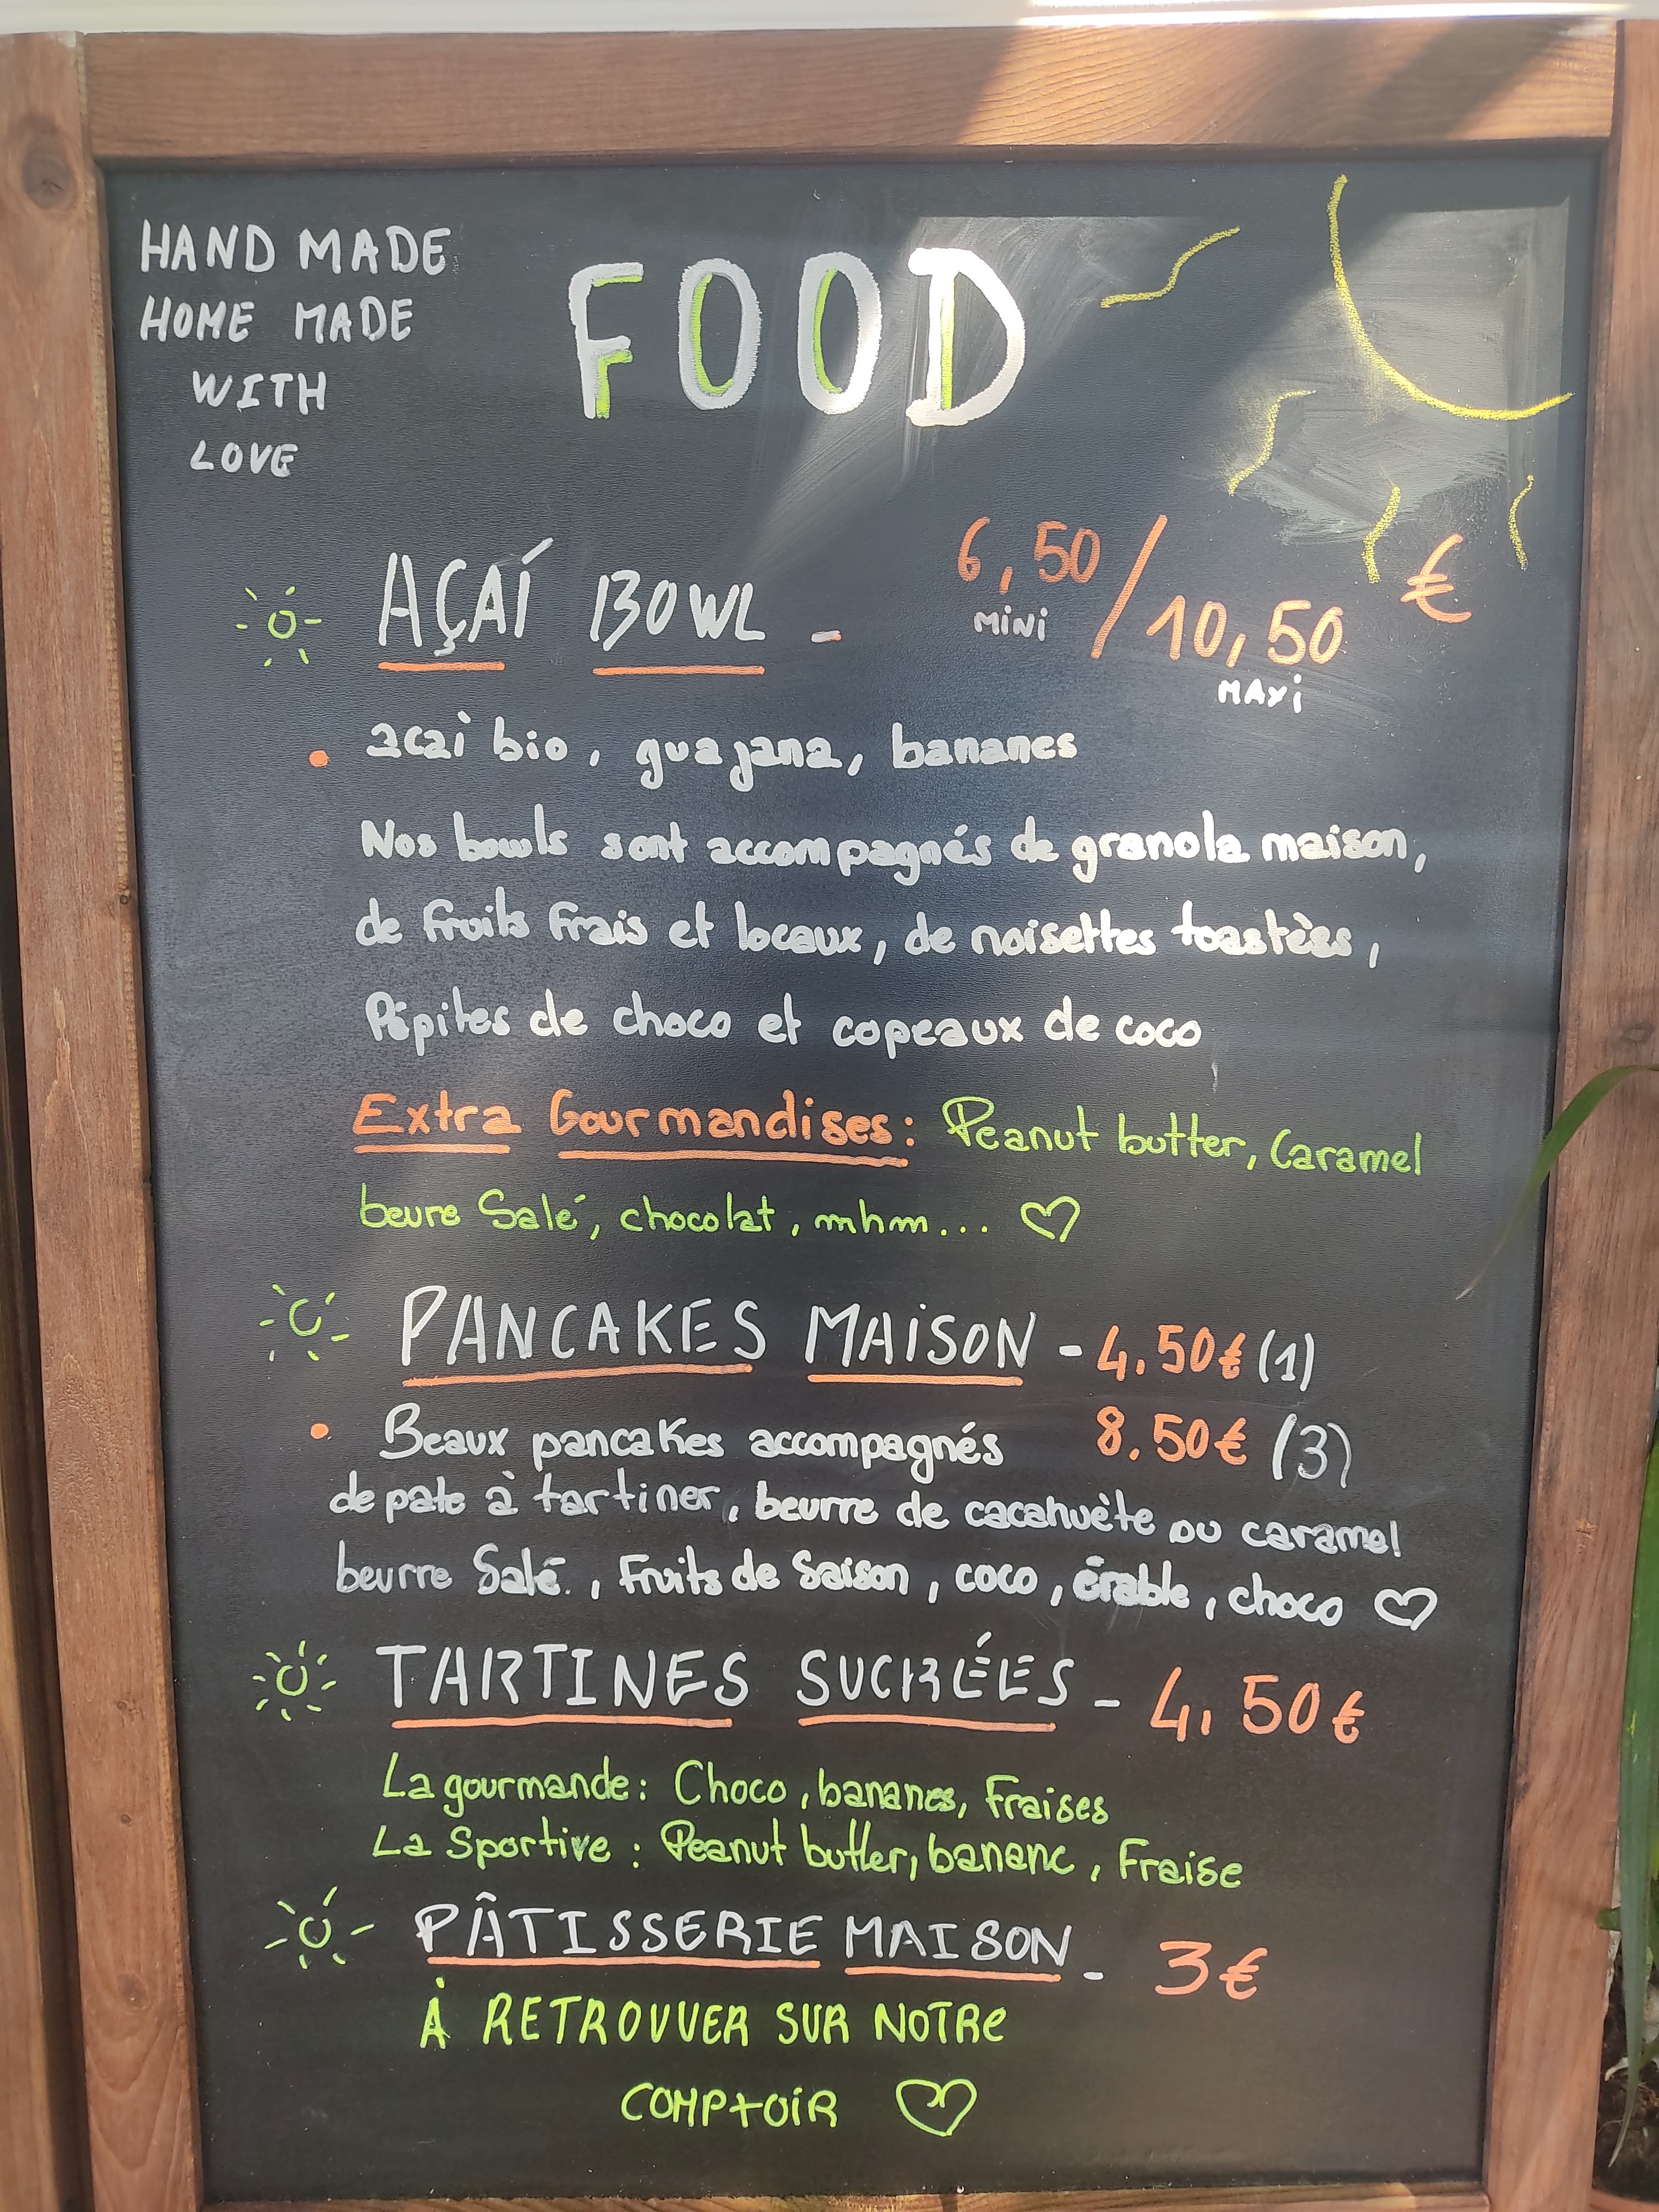 HAND MADE
HOME MADE
WITH
LOVE
FOOD
AÇAÍ BOWL - 6,50 / 10,50 €
MiNi MAXi
acaì bio, guajana, bananes
Nos bowls sont accompagnés de granola maison,
de fruits frais et locaux, de noisettes toastèes,
Pépites de choco et copeaux de coco
Extra Gourmandises: Peanut butter, Caramel
beure Salé, chocolat, mhm... ♡
PANCAKES MAiSON - 4.50€ (1)
Beaux pancakes accompagnés 8.50€ (3)
de pate à tartiner, beurre de cacahuète ou caramel
beurre Salé., Fruits de Saison, coco, érable, choco ♡
TARTINES SUCRÉES - 4,50€
La gourmande: Choco, bananes, Fraises
La Sportive: Peanut butter, banane, Fraise
PÂTISSERIE MAISON - 3€
À RETROUVER SUR NOTRe
COMPtOiR ♡